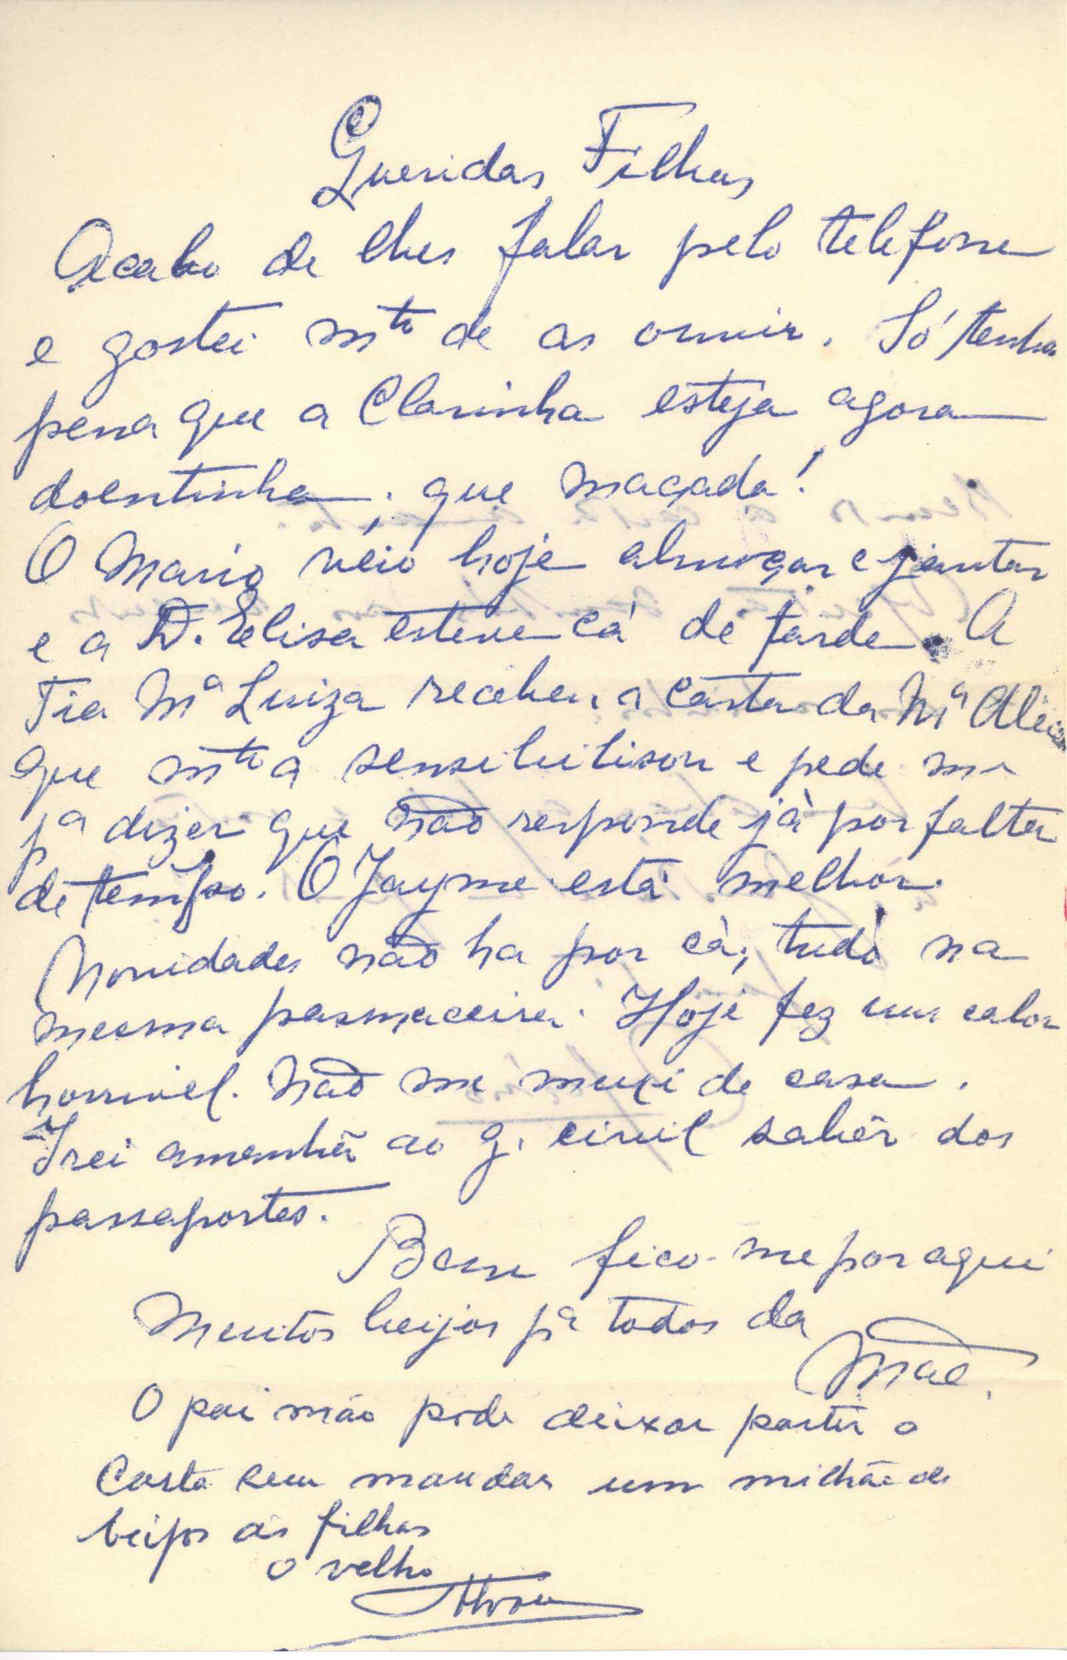 Queridas Filhas
Acabo de lhes falar pelo telefone
e gostei mto de as ouvir. Só tenho
pena que a Clarinha esteja agora
doentinha, que maçada!
O Mario veio hoje almoçar e jantar
e a D. Elisa esteve cá de tarde. A
Tia Mª Luiza recebeu a carta da Mª Alice
que mto a sensibilisou e pede me
pª dizer que não responde já por falta
de tempo. O Jayme está melhor.
Novidades não ha por cá, tudo na
mesma pasmaceira. Hoje fez um calor
horrivel. Não me mexi de casa.
Irei amanhã ao g. civil sabêr dos
passaportes.
Bem fico-me por aqui
Muitos beijos pª todos da
Mãe.
O pai não pode deixar partir a
carta sem mandar um milhão de
beijos ás filhas
O velho